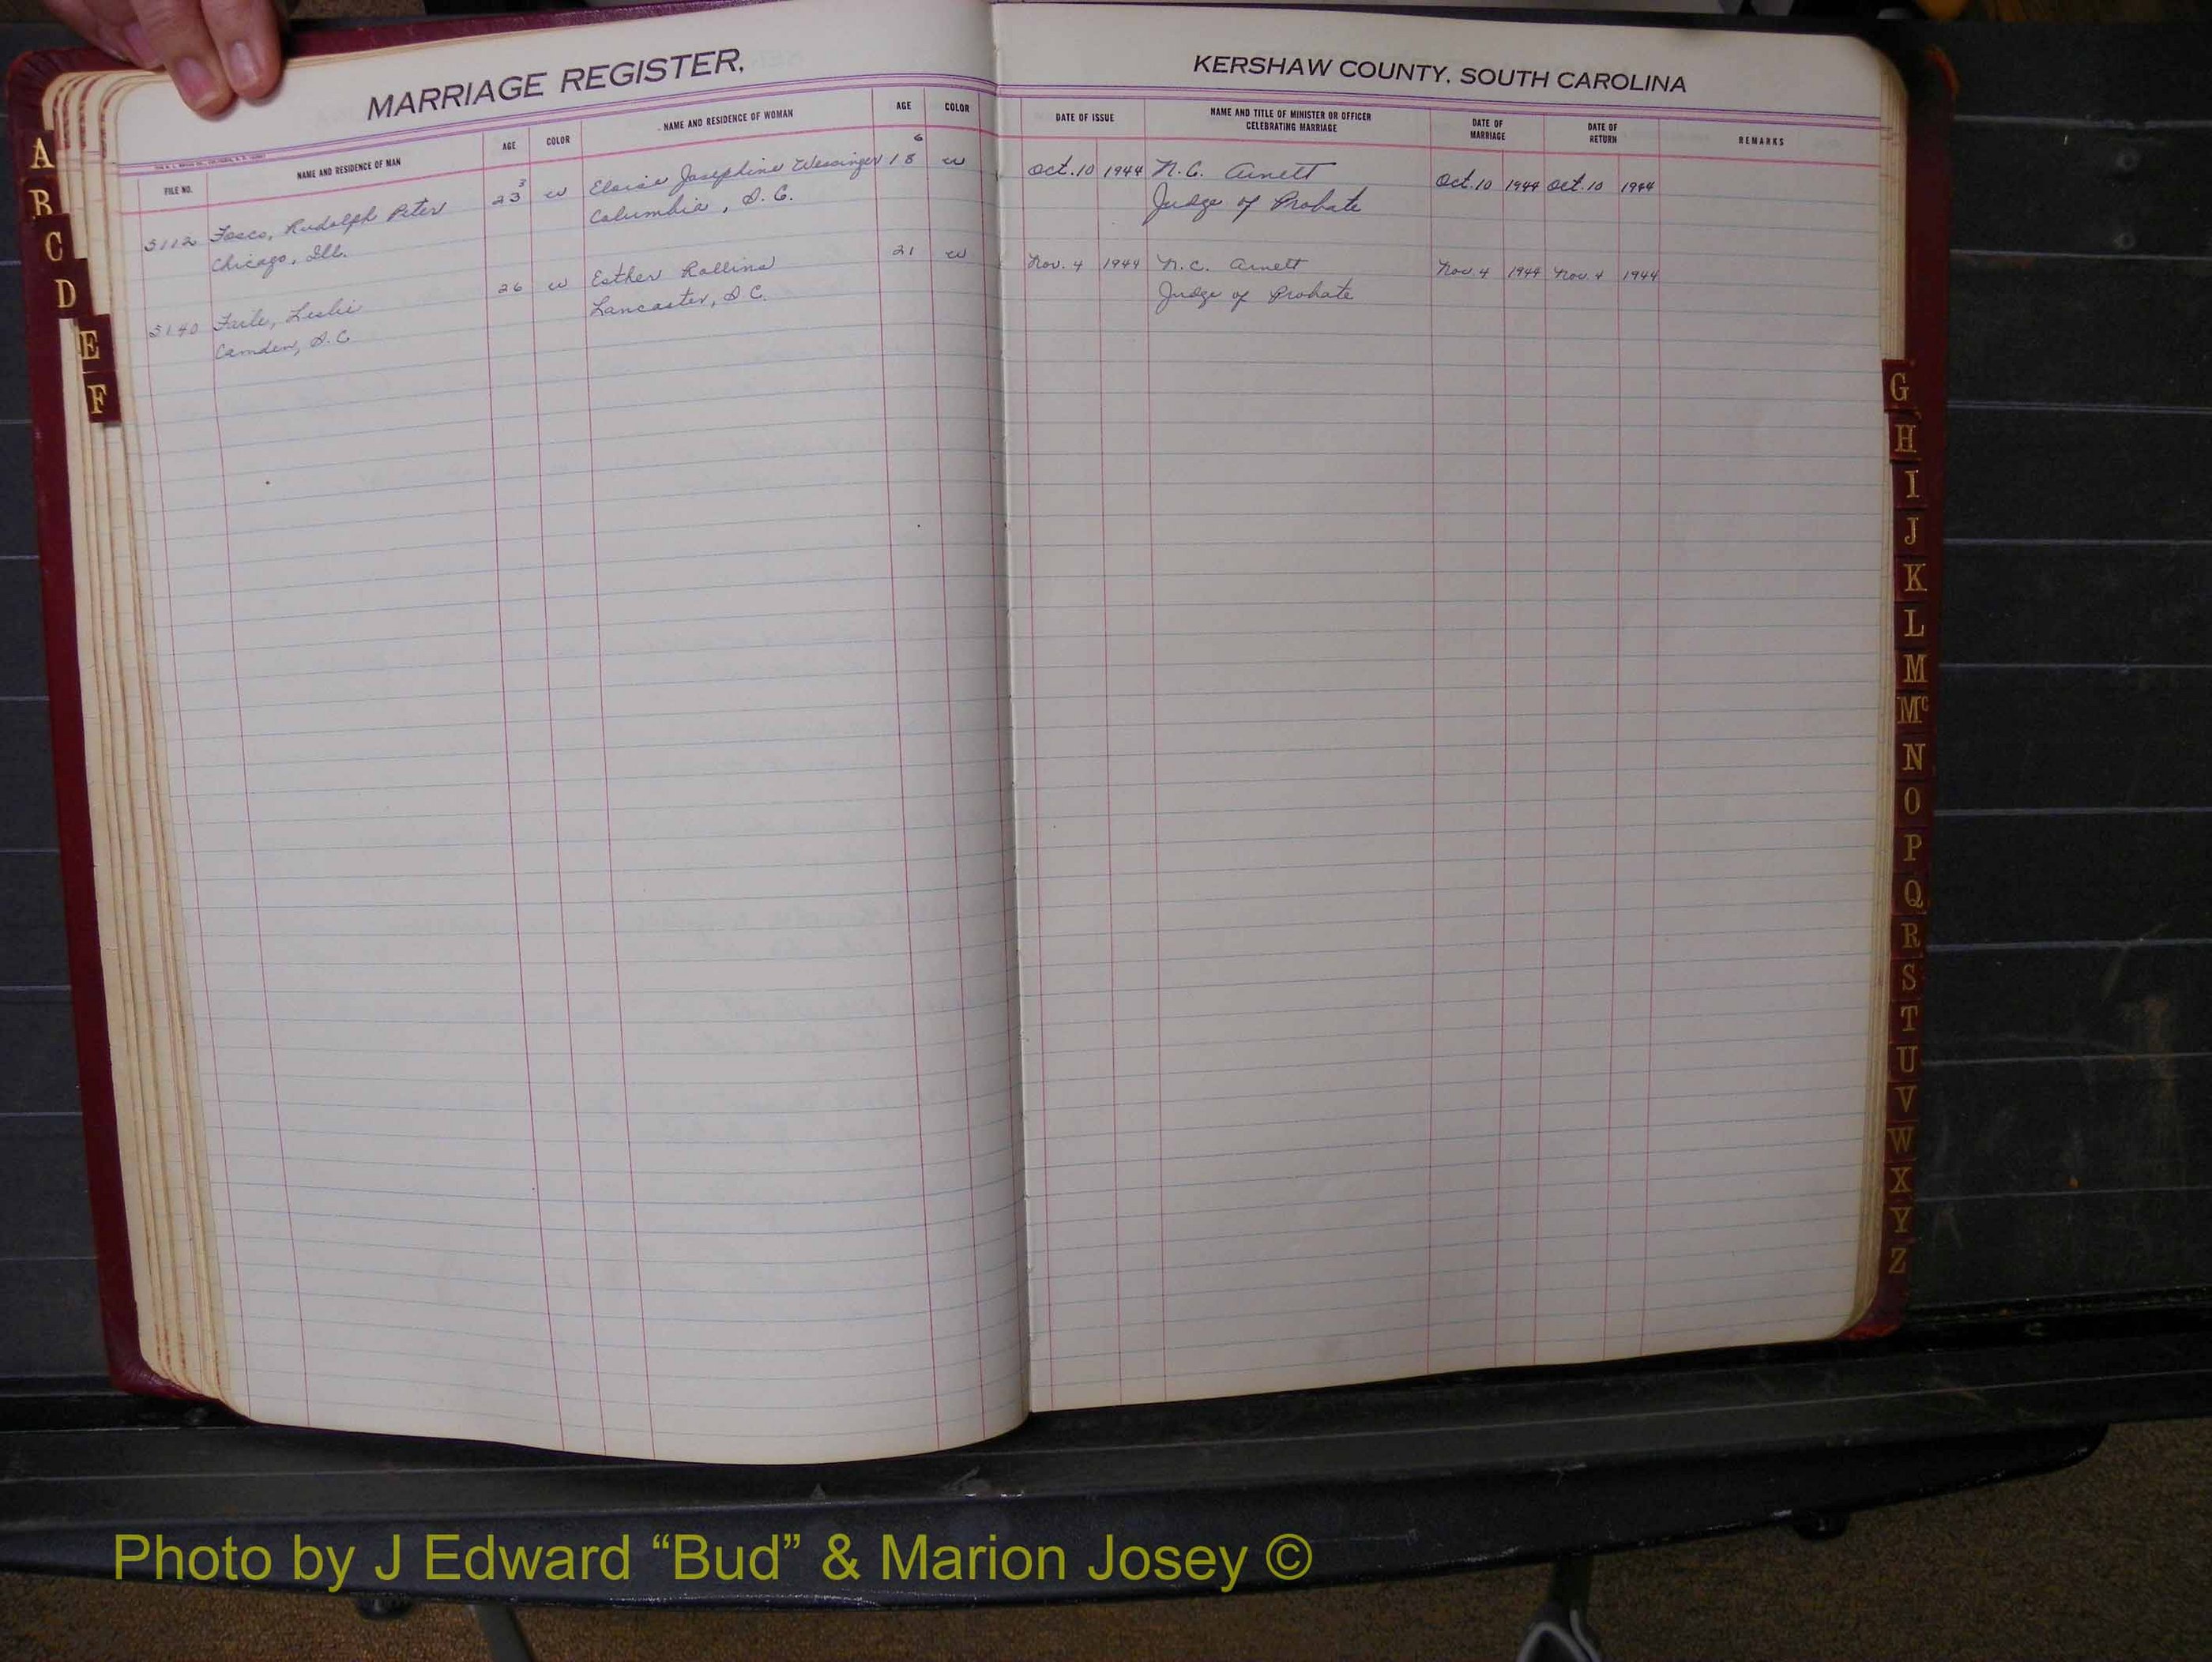 MARRIAGE REGISTER,
KERSHAW COUNTY, SOUTH CAROLINA
FILE NO.
NAME AND RESIDENCE OF MAN
AGE
COLOR
NAME AND RESIDENCE OF WOMAN
AGE
COLOR
DATE OF ISSUE
NAME AND TITLE OF MINISTER OR OFFICER
CELEBRATING MARRIAGE
DATE OF
MARRIAGE
DATE OF
RETURN
REMARKS
5112 Fosco, Rudolph Peter 23 3 w Eloise Josephine Wessinger 18 6 w Oct. 10 1944 N.C. Arnett Oct. 10 1944 Oct. 10 1944
Chicago, Ill. Columbia, S.C. Judge of Probate
5140 Faile, Leslie 26 w Esther Rollins 21 w Nov. 4 1944 N.C. Arnett Nov. 4 1944 Nov. 4 1944
Camden, S.C. Lancaster, S.C. Judge of Probate
A
B
C
D
E
F
G
H
I
J
K
L
M
Mc
N
O
P
Q
R
S
T
U
V
W
X
Y
Z
Photo by J Edward “Bud” & Marion Josey ©